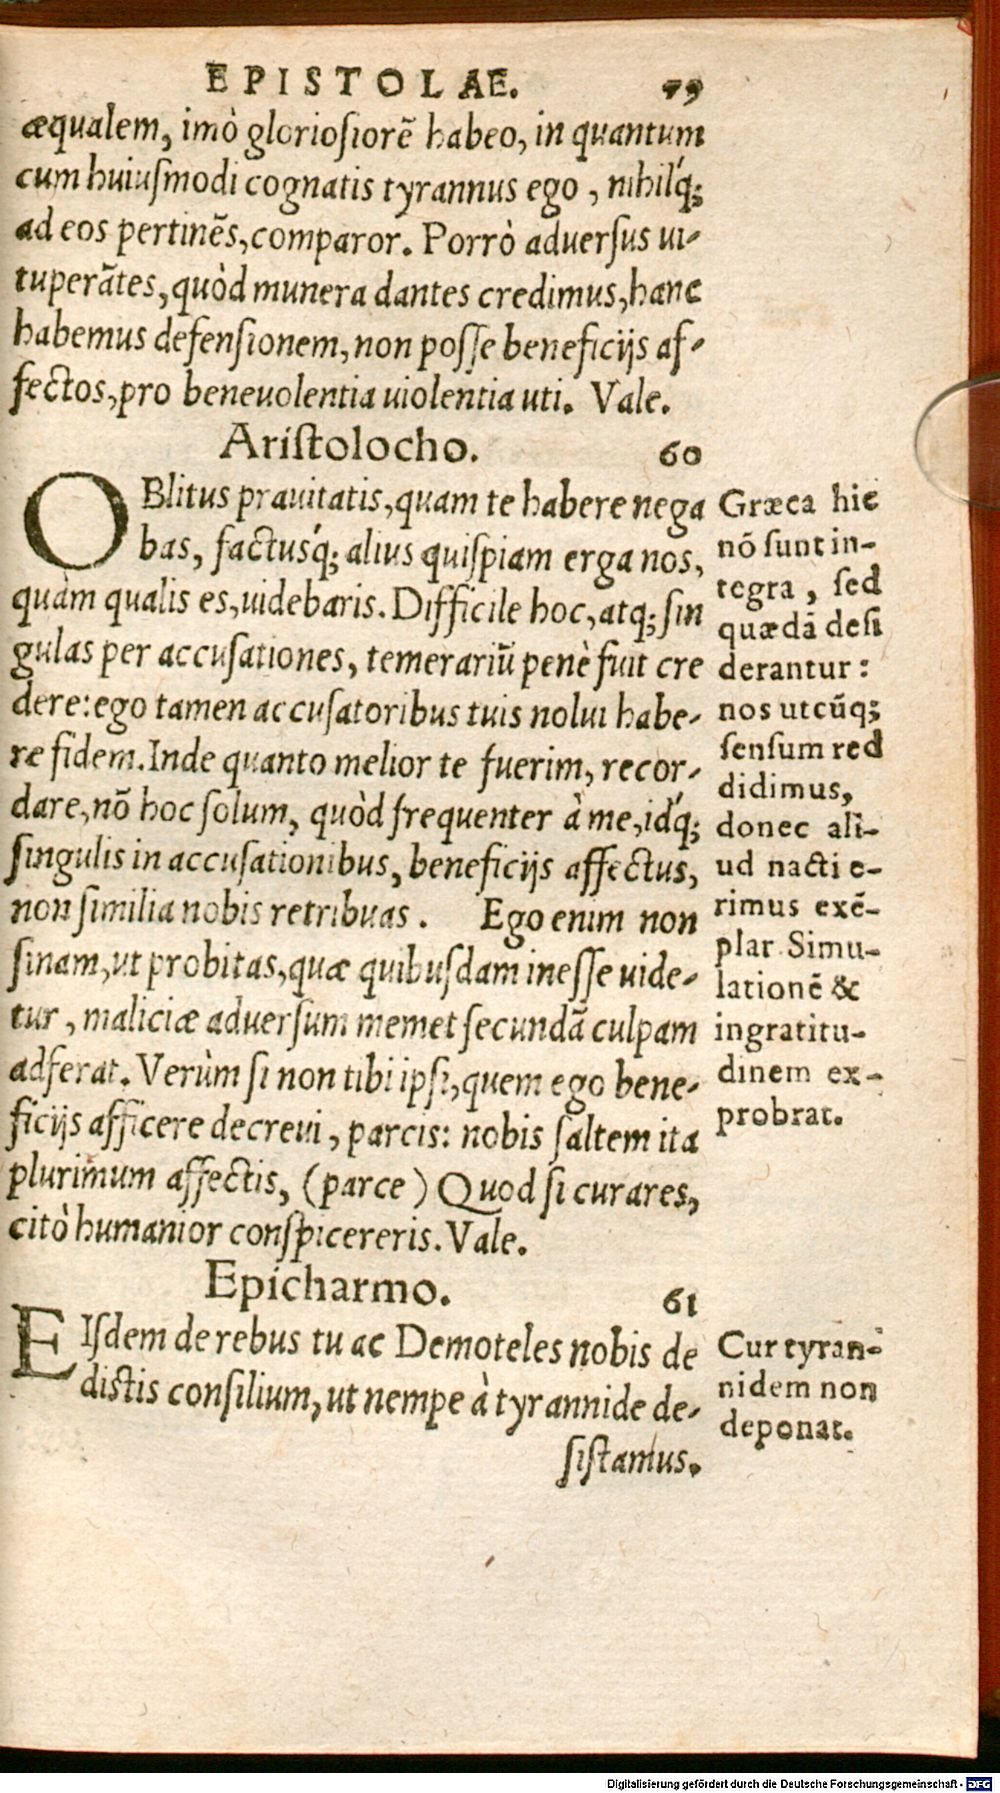 EPISTOLAE. 79
æqualem, imò gloriosiorē habeo, in quantum
cum huiusmodi cognatis tyrannus ego, nihilq́;
ad eos pertinēs, comparor. Porrò aduersus ui-
tuperātes, quòd munera dantes credimus, hanc
habemus defensionem, non posse beneficijs af-
fectos, pro beneuolentia uiolentia uti. Vale.
Aristolocho. 60
OBlitus prauitatis, quam te habere nega
bas, factusq́; alius quispiam erga nos,
quàm qualis es, uidebaris. Difficile hoc, atq; sin
gulas per accusationes, temerariū penè fuit cre
dere: ego tamen accusatoribus tuis nolui habe-
re fidem. Inde quanto melior te fuerim, recor-
dare, nō hoc solum, quòd frequenter à me, idq́;
singulis in accusationibus, beneficijs affectus,
non similia nobis retribuas. Ego enim non
sinam, ut probitas, quæ quibusdam inesse uide-
tur, maliciæ aduersum memet secundā culpam
adferat. Verùm si non tibi ipsi, quem ego bene-
ficijs afficere decreui, parcis: nobis saltem ita
plurimum affectis, (parce) Quod si curares,
citò humanior conspicereris. Vale.
Græca hic
nō sunt in-
tegra, sed
quædā desi
derantur:
nos utcūq;
sensum red
didimus,
donec ali-
ud nacti e-
rimus exē-
plar. Simu-
lationē &
ingratitu-
dinem ex-
probrat.
Epicharmo. 61
EIsdem de rebus tu ac Demoteles nobis de
distis consilium, ut nempe à tyrannide de-
sistamus.
Cur tyran-
nidem non
deponat.
Digitalisierung gefördert durch die Deutsche Forschungsgemeinschaft - DFG